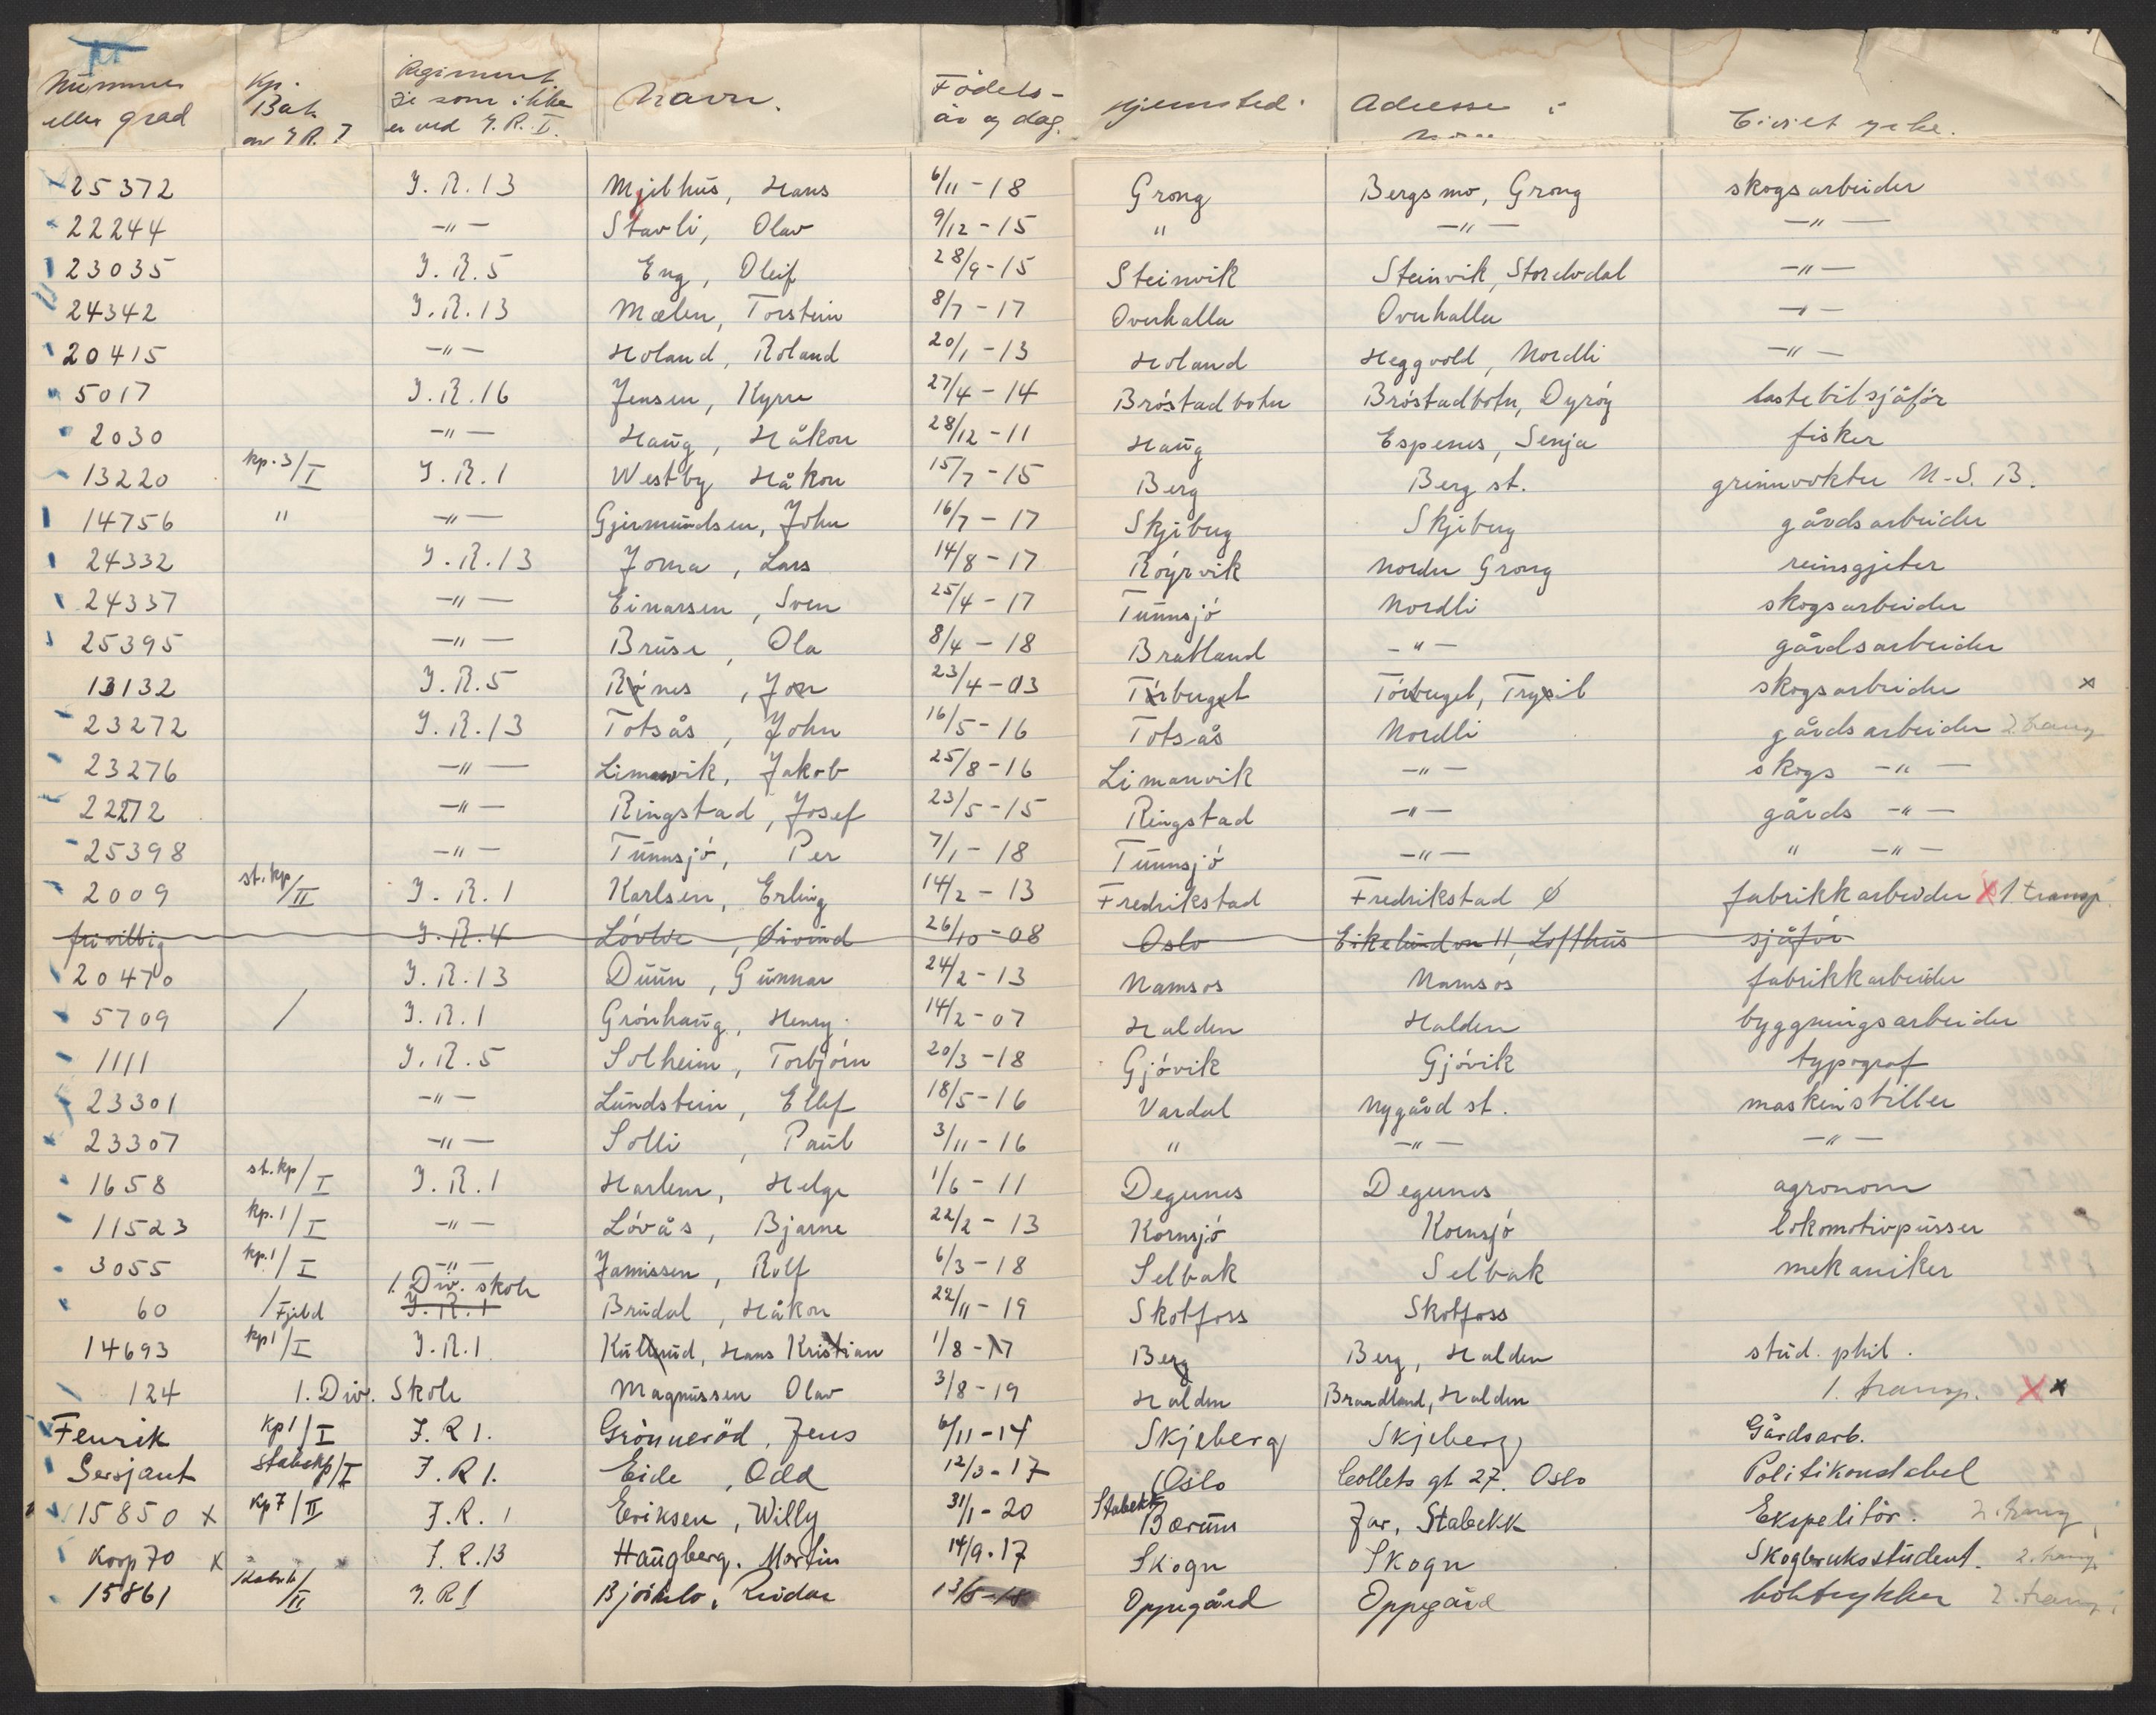 Nummer eller grad Kp. Bat. av I.R. I Regiment de som ikke er ved I.R. I. Navn. Födels- år og dag. Hjemsted. Adresse i Civilt yrke.
25372 I.R.13 Mjilhus, Hans 6/11-18 Grong Bergsmo, Grong skogsarbeider
22244 -"- Stavli, Olav 9/12-15 " -"- -"-
23035 I.R.5 Eng, Oleif 28/9-15 Steinvik Steinvik, Storelvdal -"-
24342 I.R.13 Mælen, Torstein 8/7-17 Overhalla Overhalla -"-
20415 -"- Holand, Roland 20/1-13 Holand Heggvold, Nordli -"-
5017 I.R.16 Jensen, Kyrre 27/4-14 Bróstadbotn Bróstadbotn, Dyróy lastebilsjåfór
2030 -"- Haug, Håkon 28/12-11 Haug Espenes, Senja fisker
13220 kp.3/I I.R.1 Westby, Håkon 15/7-15 Berg Berg st. grinnvokter N.S.B.
14756 " -"- Gjermundsen, John 16/7-17 Skjeberg Skjeberg gårdsarbeider
24332 I.R.13 Joma, Lars 14/8-17 Róyrvik Nordre Grong reinsgjeter
24337 -"- Einarsen, Sven 25/4-17 Tunnsjó Nordli skogsarbeider
25395 -"- Bruse, Ola 8/4-18 Bratland -"- gårdsarbeider
13132 I.R.5 Rónes, Jon 23/4-03 Tórberget Tórberget, Trysil skogsarbeider x
23272 I.R.13 Totsås, John 16/5-16 Totsås Nordli gårdsarbeider 2. transp
23276 -"- Limanvik, Jakob 25/8-16 Limanvik -"- skogs -"-
22272 -"- Ringstad, Josef 23/5-15 Ringstad -"- gårds -"-
25398 -"- Tunnsjó, Per 7/1-18 Tunnsjó -"- " -"-
2009 st.kp/II I.R.1 Karlsen, Erling 14/2-13 Fredrikstad Fredrikstad Ø fabrikkarbeider x 1 transp.
frivillig I.R.4 Øivind 26/10-08 Oslo Eikelundvn 11, Lofthus sjåfór
20470 I.R.13 Duun, Gunnar 24/2-13 Namsos Namsos fabrikkarbeider
5709 / I.R.1 Grónhaug, Henry 14/2-07 Halden Halden byggningsarbeider
1111 I.R.5 Solheim, Torbjórn 20/3-18 Gjóvik Gjóvik typograf
23301 -"- Lundstein, Ellef 18/5-16 Vardal Nygård st. maskinstiller
23307 -"- Solli, Paul 3/11-16 " -"- -"-
1658 st.kp/I I.R.1 Harlem, Helge 1/6-11 Degernes Degernes agronom
11523 kp.1/I -"- Lóvås, Bjarne 22/2-13 Kornsjó Kornsjó lokomotivpusser
3055 kp.1/I -"- Jamissen, Rolf 6/3-18 Selbak Selbak mekaniker
60 /Fjeld 1. Div. skole I.R.1 Brudal, Håkon 22/11-19 Skotfoss Skotfoss
14693 kp1/I I.R.1 Kullerud, Hans Kristian 1/8-17 Berg Berg, Halden stud. phil.
124 1. Div. Skole Magnussen Olav 3/8-19 Halden Halden 1. transp. x x
Fenrik kp1/I I.R1. Grönneröd, Jens 6/11-14 Skjeberg Skjeberg Gårdsarb.
Sersjant Stabskp/I I.R1. Eide, Odd 12/3-17 Oslo Collets gt 27. Oslo Politikonstabel
15850 x kp7/II I.R.1 Eriksen, Willy 31/1-20 Stabekk Bærum Jar, Stabekk Ekspeditör. 2. transp
Korp 70 x I.R.13 Haugberg, Martin 14/9-17 Skogn Skogn Skogbruksstudent. 2. transp
15861 /II I.R1 Reidar 13/5-18 Oppegård Oppegård boktrykker 2. transp